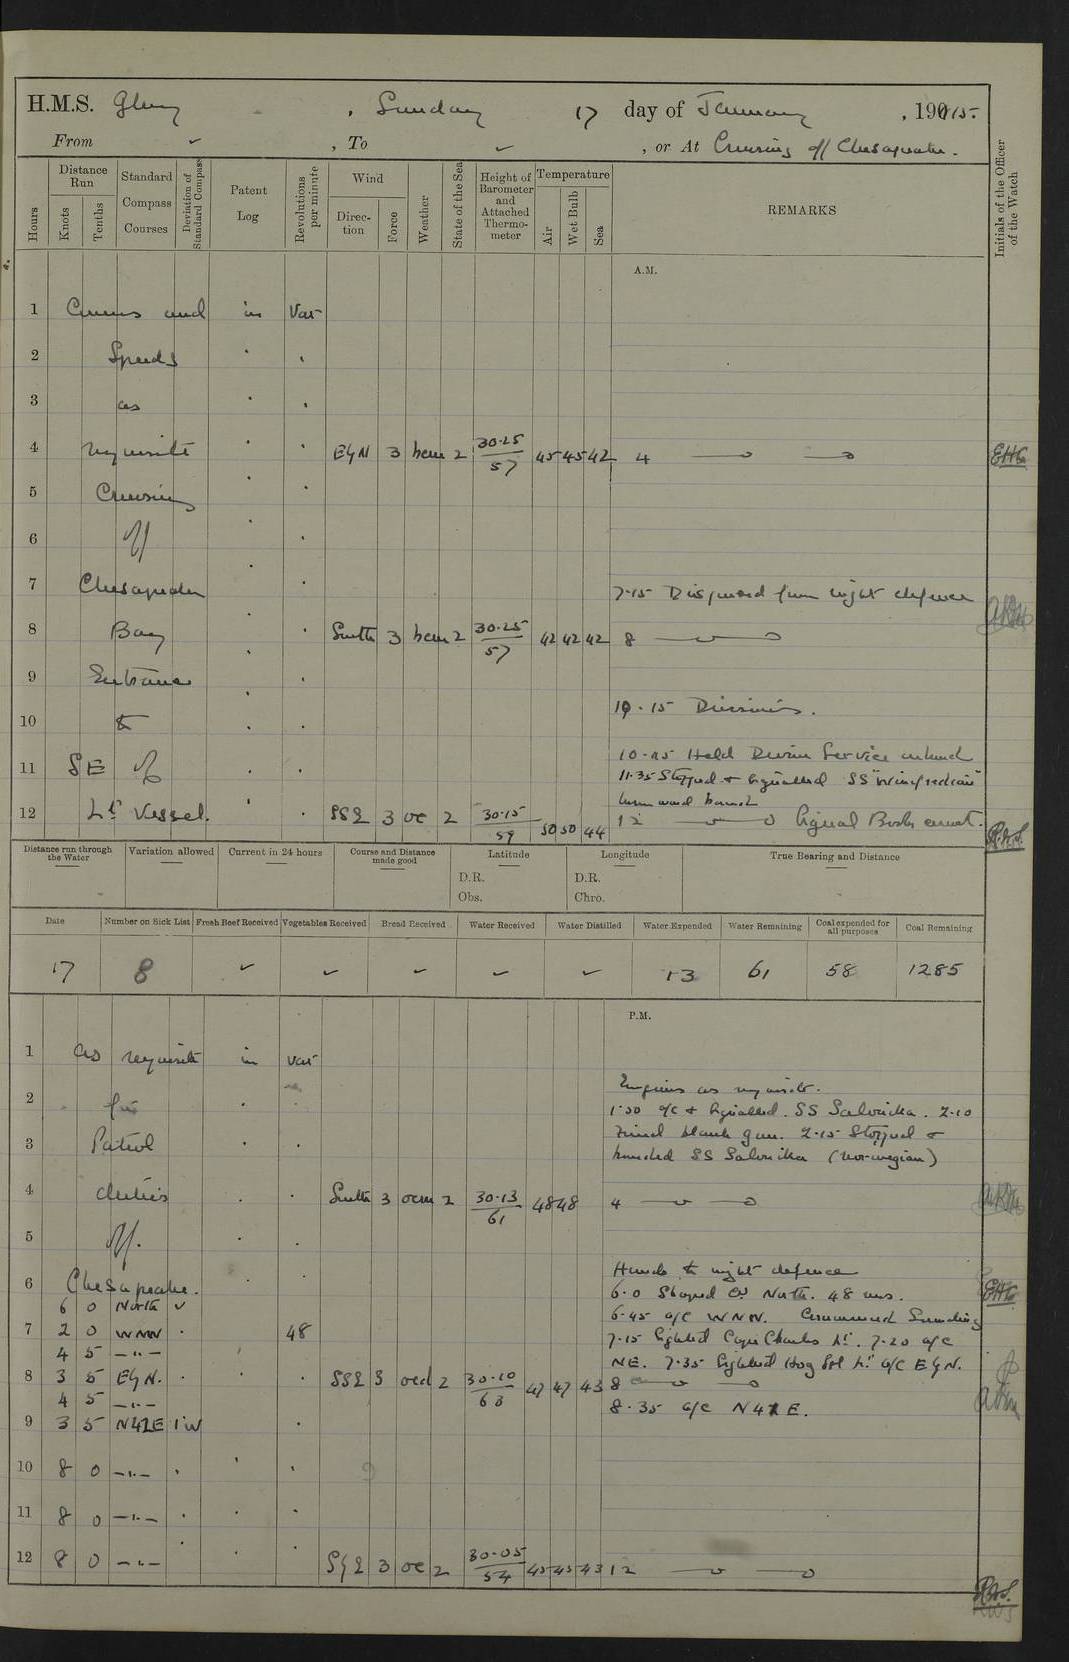 H.M.S. Glory , Sunday 17 day of January , 191915.
From ✓ , To ✓ , or At Cruising off Chesapeake.
Hours
Distance Run
Knots
Tenths
Standard Compass Courses
Deviation of Standard Compass
Patent Log
Revolutions per minute
Wind
Direction
Force
Weather
State of the Sea
Height of Barometer and Attached Thermometer
Temperature
Air
Wet Bulb
Sea
REMARKS
Initials of the Officer of the Watch
A.M.
1 Courses and in Var
2 Speeds
3 as
4 requisite E by N 3 bcm 2 30.25/57 45 45 42 4 EHG
5 Cruising
6 off
7 Chesapeake 7.15 Dispersed from night defence
8 Bay South 3 bcm 2 30.25/57 42 42 42 8
9 Entrance
10 to 10.15 Divisions.
10.45 Held Divine Service
11 SE of 11.35 Stopped & signalled SS "Winifredian"
homeward bound
12 Lt Vessel. SSE 3 oc 2 30.15/59 50 50 44 12 Signal Books correct.
Distance run through the Water
Variation allowed
Current in 24 hours
Course and Distance made good
Latitude
D.R.
Obs.
Longitude
D.R.
Chro.
True Bearing and Distance
Date
Number on Sick List
Fresh Beef Received
Vegetables Received
Bread Received
Water Received
Water Distilled
Water Expended
Water Remaining
Coal expended for all purposes
Coal Remaining
17 8 ✓ ✓ ✓ ✓ ✓ 13 61 58 1285
P.M.
1 as requisite in var
Engines as requisite.
2 for 1.50 a/c & signalled SS Salonika. 2.10
3 Patrol Fired blank gun. 2.15 Stopped &
boarded SS Salonika (Norwegian)
4 duties South 3 ocm 2 30.13/61 48 48 4
5 off.
Hands to night defence
6 Chesapeake. EHG
6 0 North ✓ 6.0 Shaped Co North. 48 revs.
6.45 a/c WNW. Commenced Sounding
7 2 0 WNW 48 7.15 Sighted Cape Charles Lt. 7.20 a/c
4 5 -"- NE. 7.35 Sighted Hog Isl Lt. a/c E by N.
8 3 5 E by N. SSE 3 ocd 2 30.10/63 47 47 43 8
4 5 -"- 8.35 a/c N41E.
9 3 5 N42E 1'W
10 8 0 -"-
11 8 0 -"-
12 8 0 -"- S by E 3 oc 2 30.05/54 45 45 43 12